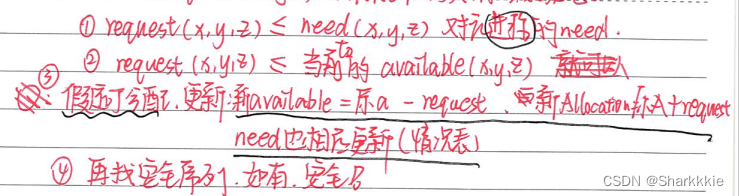 ① request(x,y,z) ≤ need(x,y,z) 对应进程的need.
② request (x,y,z) ≤ 当前t₀的 available(x,y,z)
③ 假设可分配, 更新: 新available = 原a - request 新Allocation原A+request
need也相应更新 (情况表)
④ 再找安全序列, 如有, 安全
CSDN @Sharkkkie